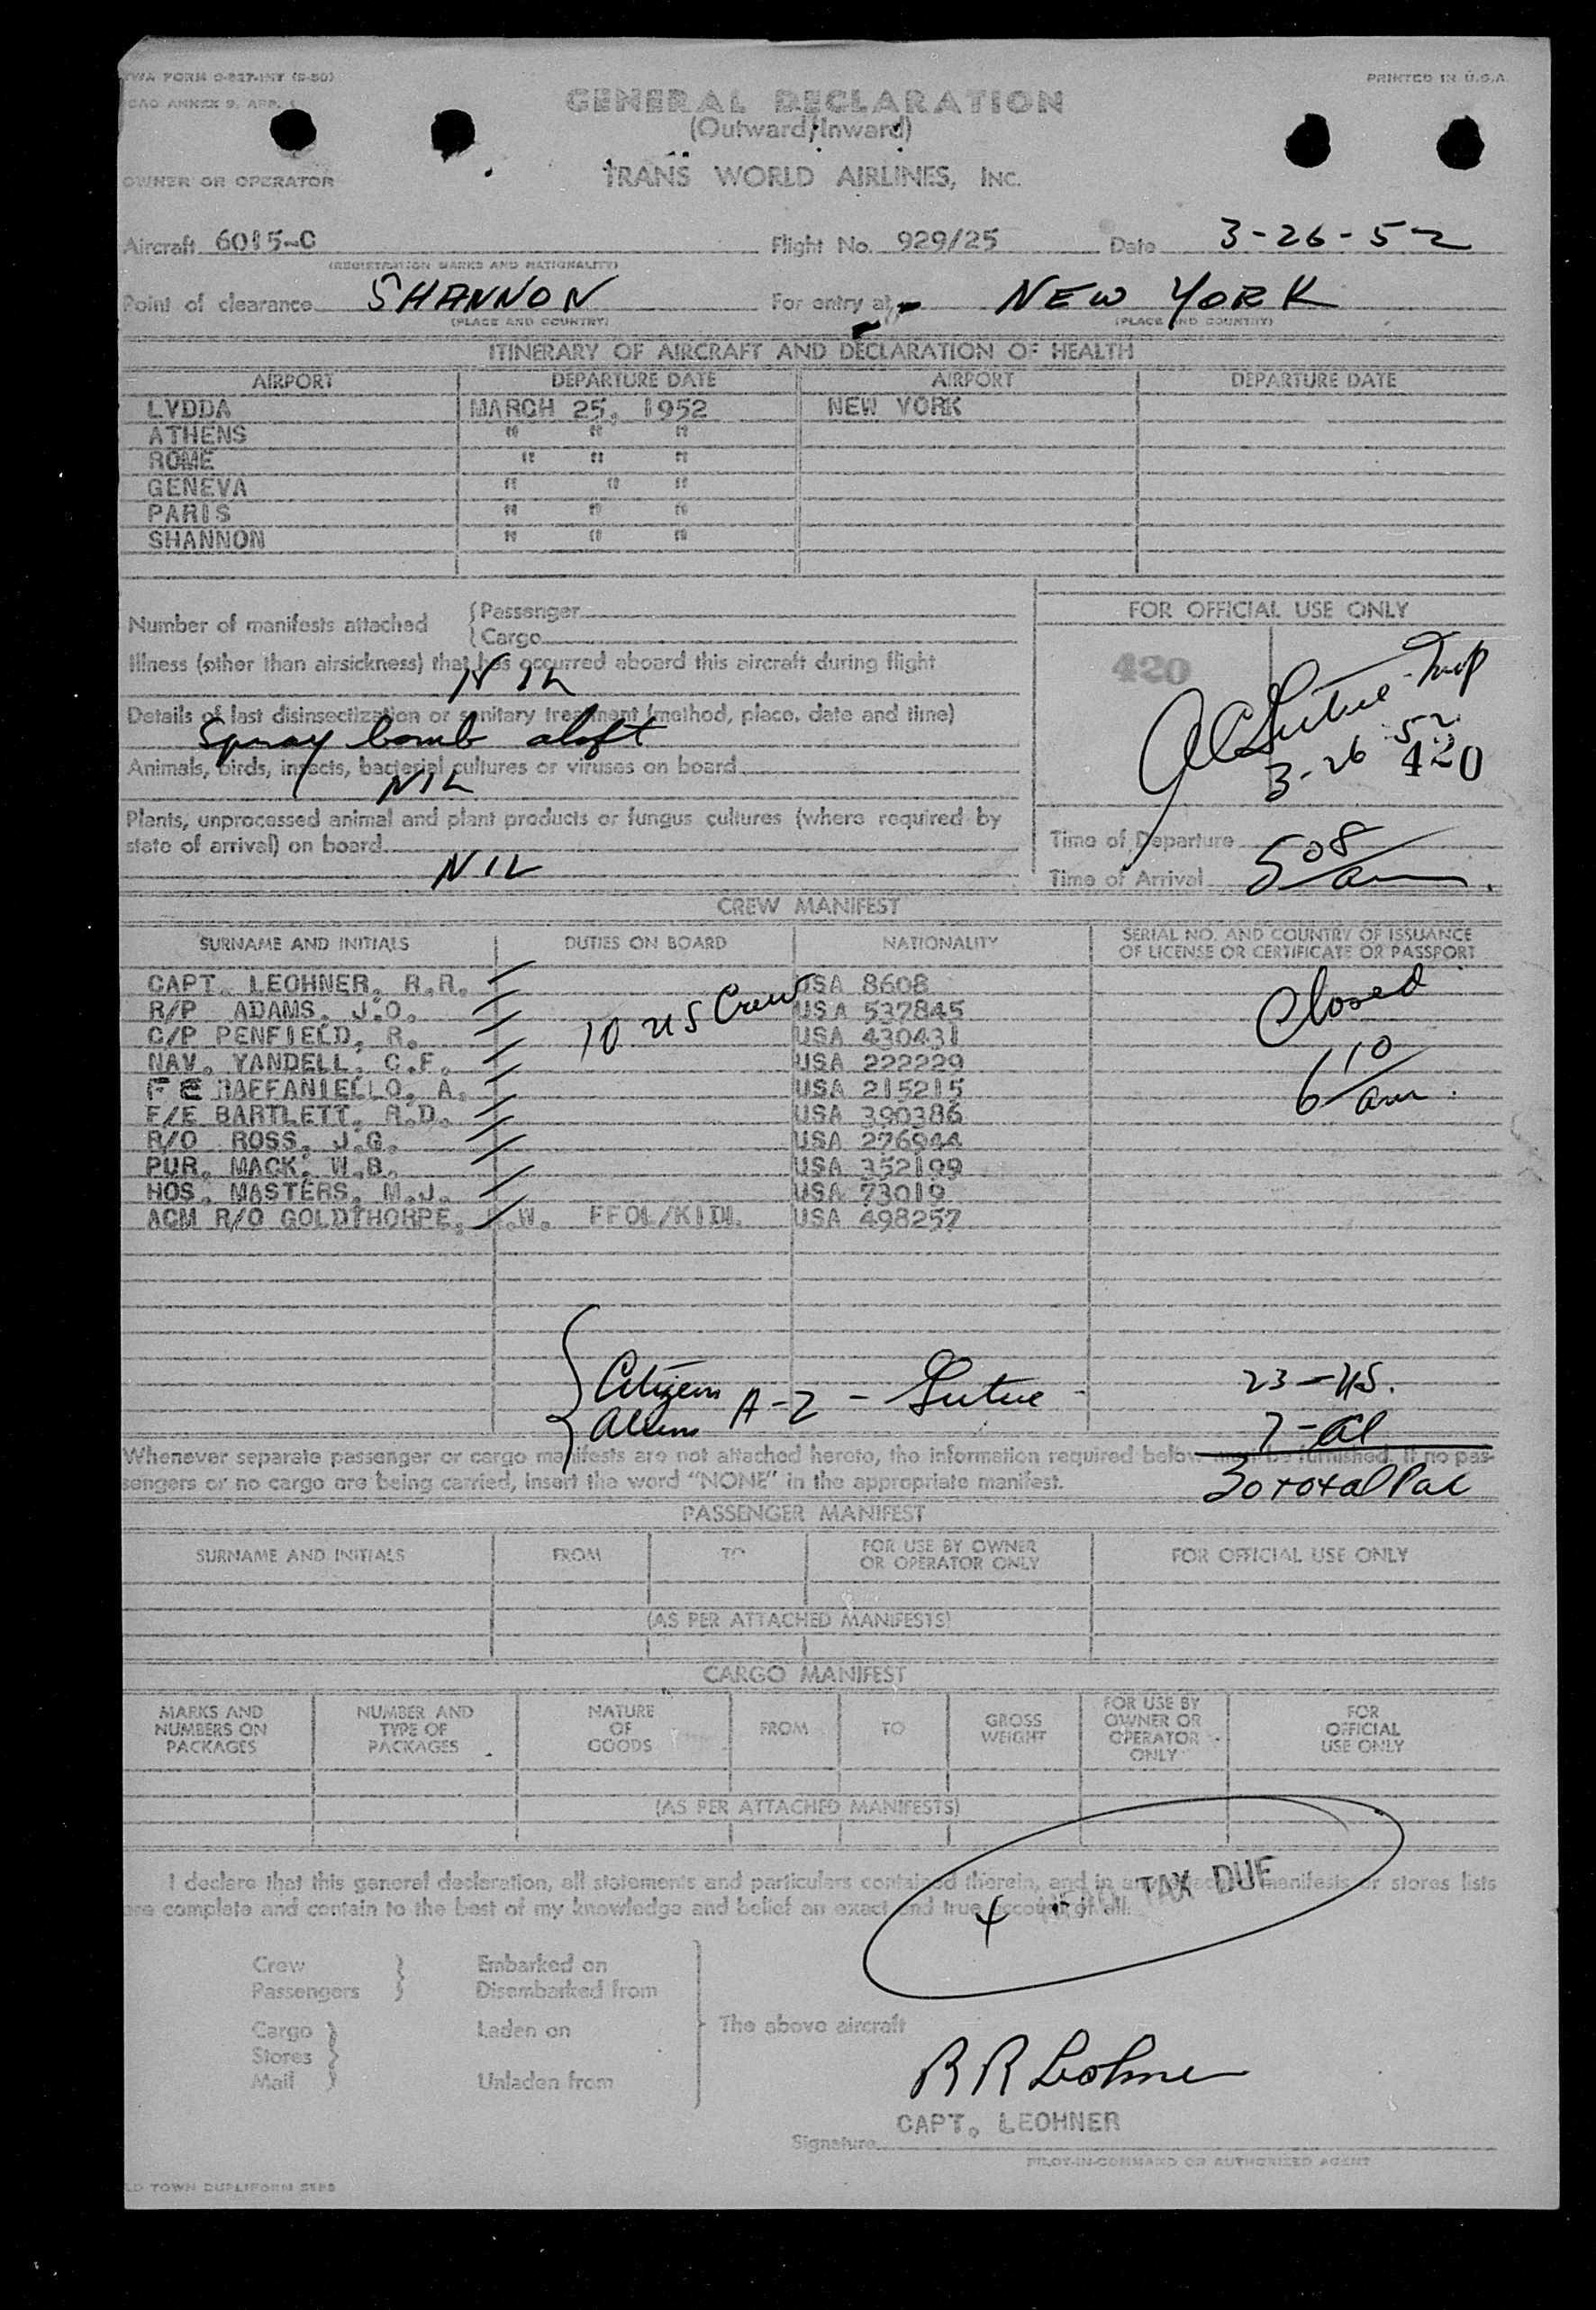 TWA FORM O-827-INT (5-50)
PRINTED IN U.S.A.
ICAO ANNEX 9, APP. 1
GENERAL DECLARATION
(Outward/Inward)
OWNER OR OPERATOR
TRANS WORLD AIRLINES, INC.
Aircraft 6015-C Flight No. 929/25 Date 3-26-52
(REGISTRATION MARKS AND NATIONALITY)
Point of clearance SHANNON For entry at NEW YORK
(PLACE AND COUNTRY) (PLACE AND COUNTRY)
ITINERARY OF AIRCRAFT AND DECLARATION OF HEALTH
AIRPORT DEPARTURE DATE AIRPORT DEPARTURE DATE
LYDDA MARCH 25, 1952 NEW YORK
ATHENS " " "
ROME " " "
GENEVA " " "
PARIS " " "
SHANNON " " "
Number of manifests attached { Passenger
{ Cargo
FOR OFFICIAL USE ONLY
Illness (other than airsickness) that has occurred aboard this aircraft during flight
NIL
420
Details of last disinsectization or sanitary treatment (method, place, date and time)
Spray bomb aloft
3-26 52
420
Animals, birds, insects, bacterial cultures or viruses on board
NIL
Plants, unprocessed animal and plant products or fungus cultures (where required by
state of arrival) on board
NIL
Time of Departure
Time of Arrival 508 am
CREW MANIFEST
SURNAME AND INITIALS DUTIES ON BOARD NATIONALITY SERIAL NO. AND COUNTRY OF ISSUANCE
OF LICENSE OR CERTIFICATE OR PASSPORT
CAPT. LEOHNER, R.R. USA 8608
R/P ADAMS, J.O. USA 537845
10 US Crew
Closed
C/P PENFIELD, R. USA 430431
NAV. YANDELL, C.F. USA 222229
610 am
F E RAFFANIELLO, A. USA 215215
F/E BARTLETT, R.D. USA 390386
R/O ROSS, J.G. USA 276944
PUR. MACK, W.B. USA 352199
HOS. MASTERS, M.J. USA 73019
ACM R/O GOLDTHORPE, .W. FFOL/KIDL USA 498257
Citizens
Aliens A-2 -
23-US.
7-al
30 total Pax
Whenever separate passenger or cargo manifests are not attached hereto, the information required below must be furnished. If no pas-
sengers or no cargo are being carried, insert the word "NONE" in the appropriate manifest.
PASSENGER MANIFEST
SURNAME AND INITIALS FROM TO FOR USE BY OWNER
OR OPERATOR ONLY FOR OFFICIAL USE ONLY
(AS PER ATTACHED MANIFESTS)
CARGO MANIFEST
MARKS AND
NUMBERS ON
PACKAGES
NUMBER AND
TYPE OF
PACKAGES
NATURE
OF
GOODS
FROM
TO
GROSS
WEIGHT
FOR USE BY
OWNER OR
OPERATOR
ONLY
FOR
OFFICIAL
USE ONLY
(AS PER ATTACHED MANIFESTS)
I declare that this general declaration, all statements and particulars contained therein, and in any manifests or stores lists
are complete and contain to the best of my knowledge and belief an exact and true account of all:
4 HEAD TAX DUE
Crew
Passengers
Embarked on
Disembarked from
Cargo
Stores
Mail
Laden on
Unladen from
The above aircraft
R R Leohner
CAPT. LEOHNER
Signature
PILOT-IN-COMMAND OR AUTHORIZED AGENT
LD TOWN DUPLIFORM